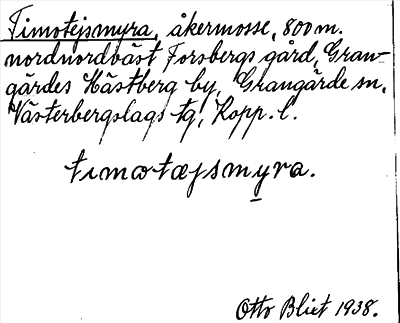 Timotejsmyra, åkermosse, 800 m.
nordnordväst Forsbergs gård, Gran-
gärdes Hästberg by, Grangärde sn,
Västerbergslags tg, Kopp. l.
timotæjsmyra.
Otto Bliet 1938.